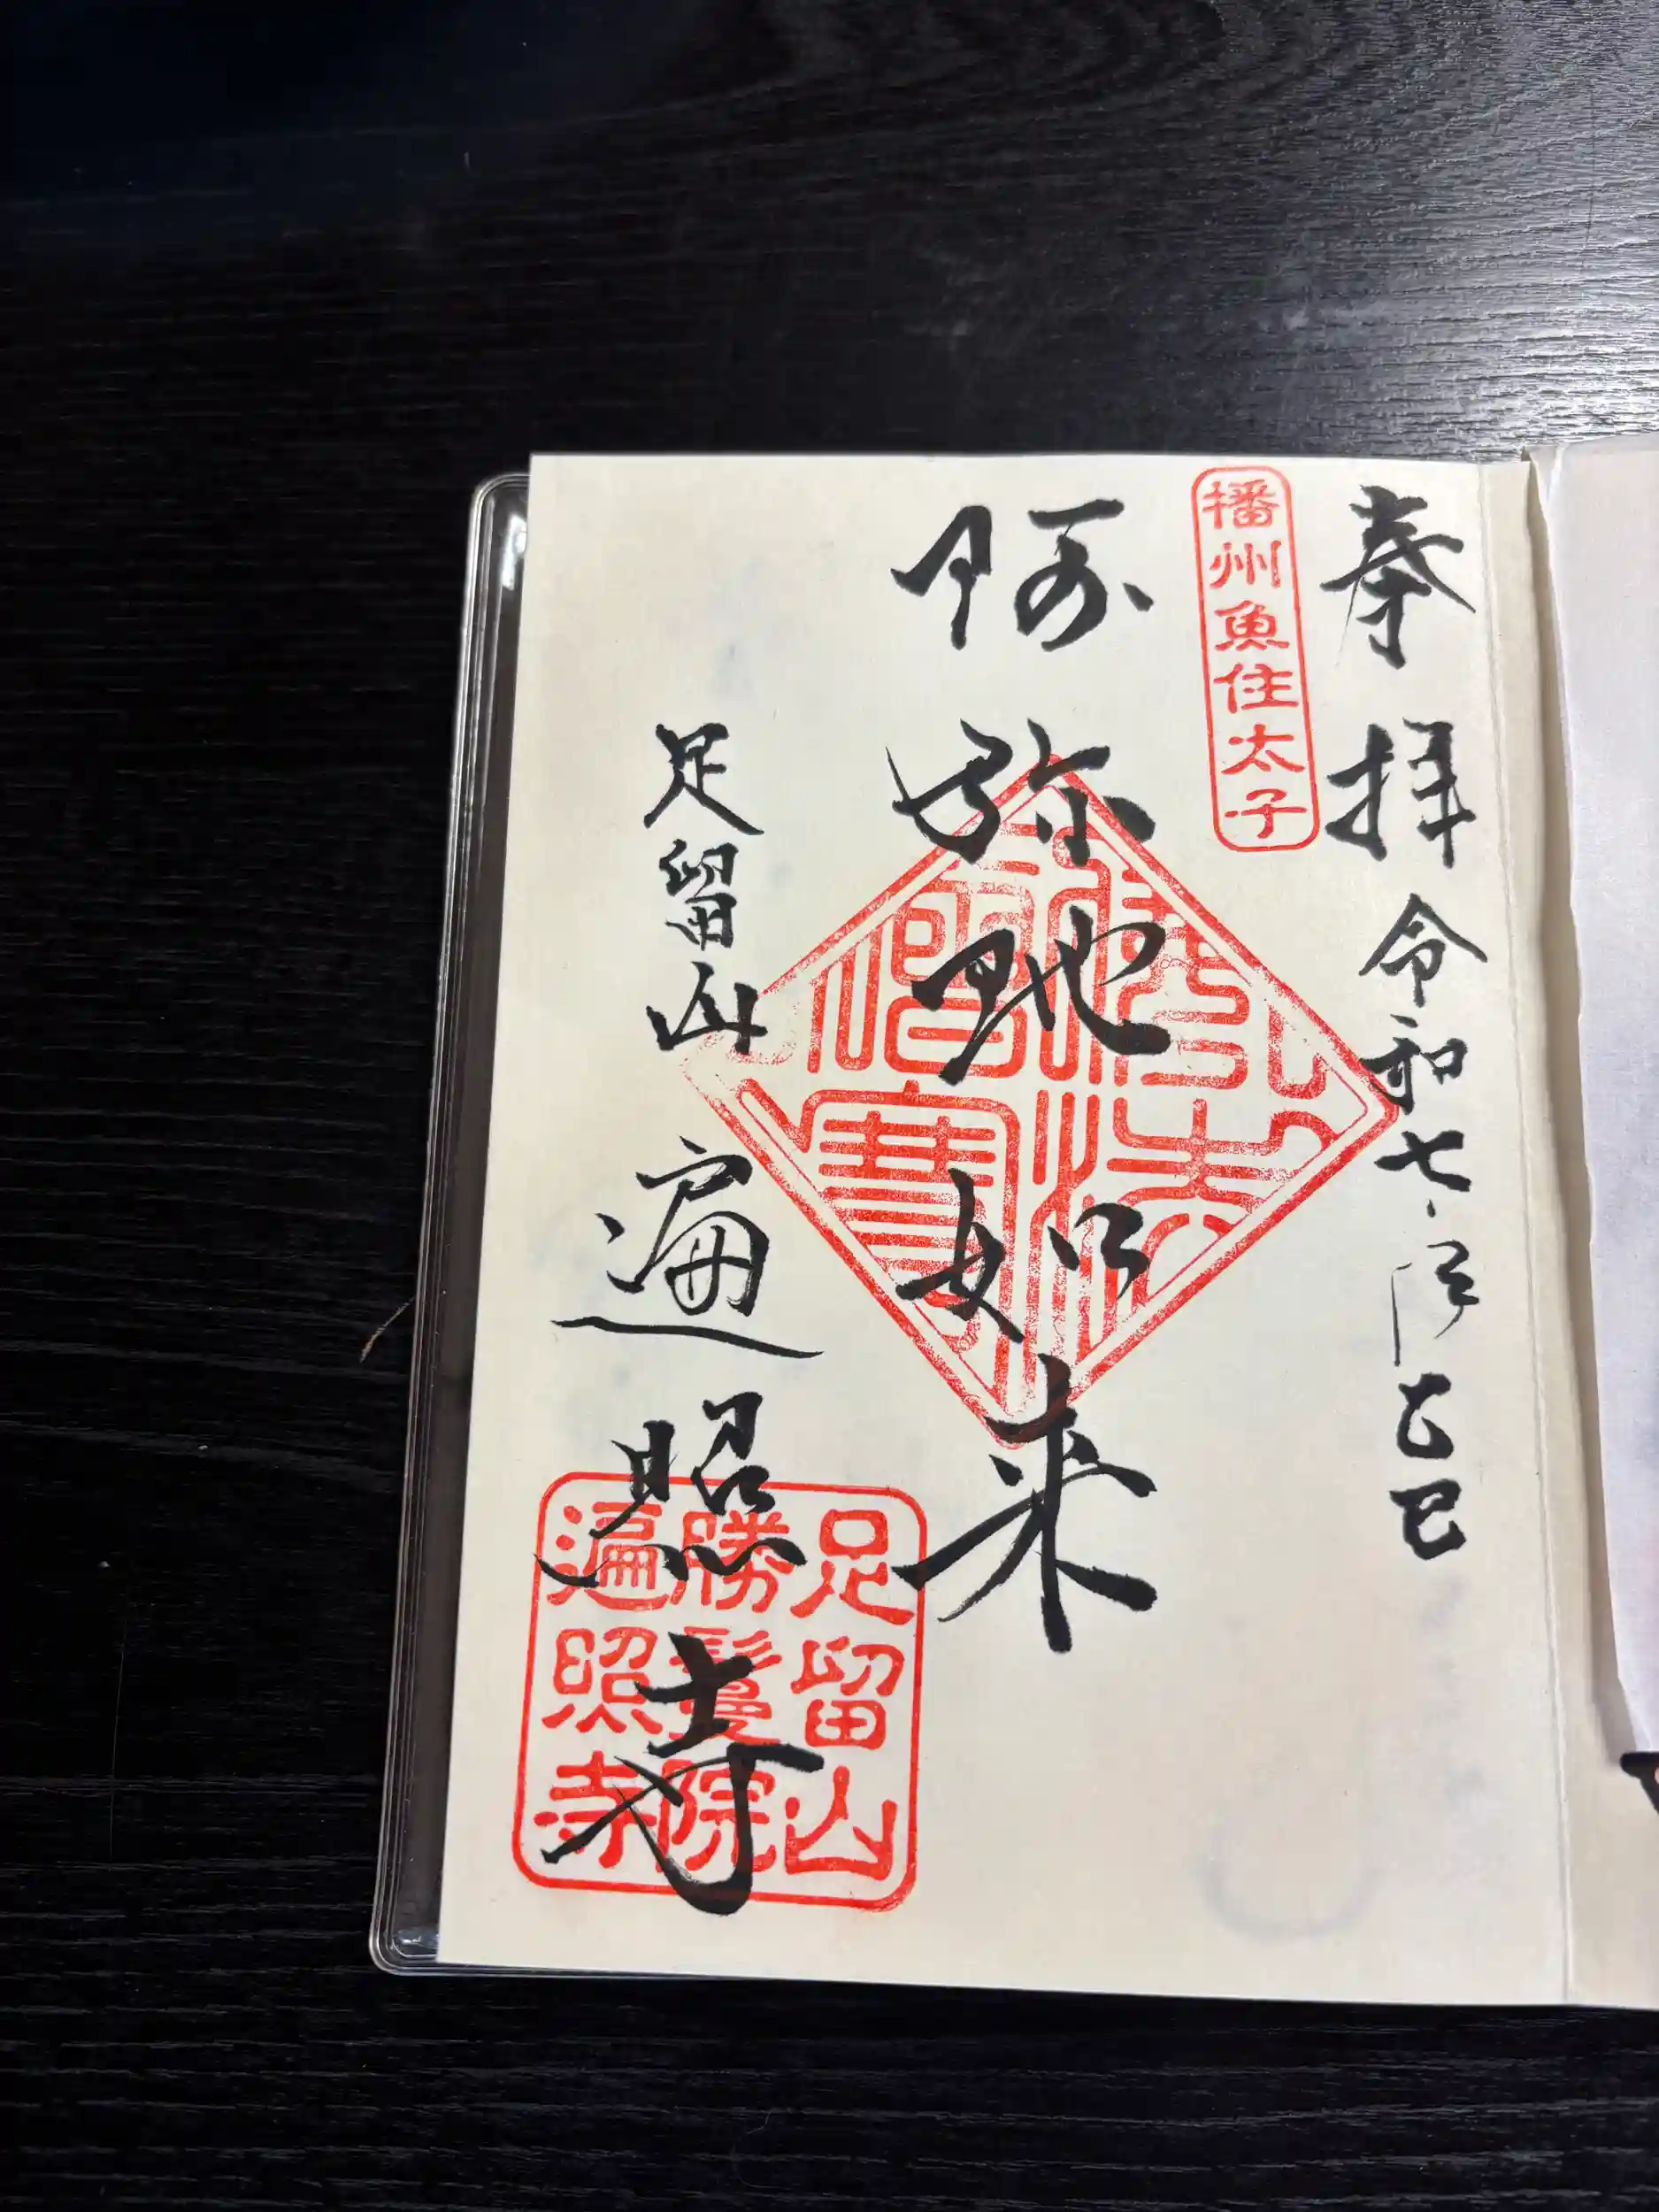 奉拝 令和七
乙巳
播州魚住太子
阿弥陀如来
佛法僧寶
足留山 遍照寺
足留山
勝鬘院
遍照寺